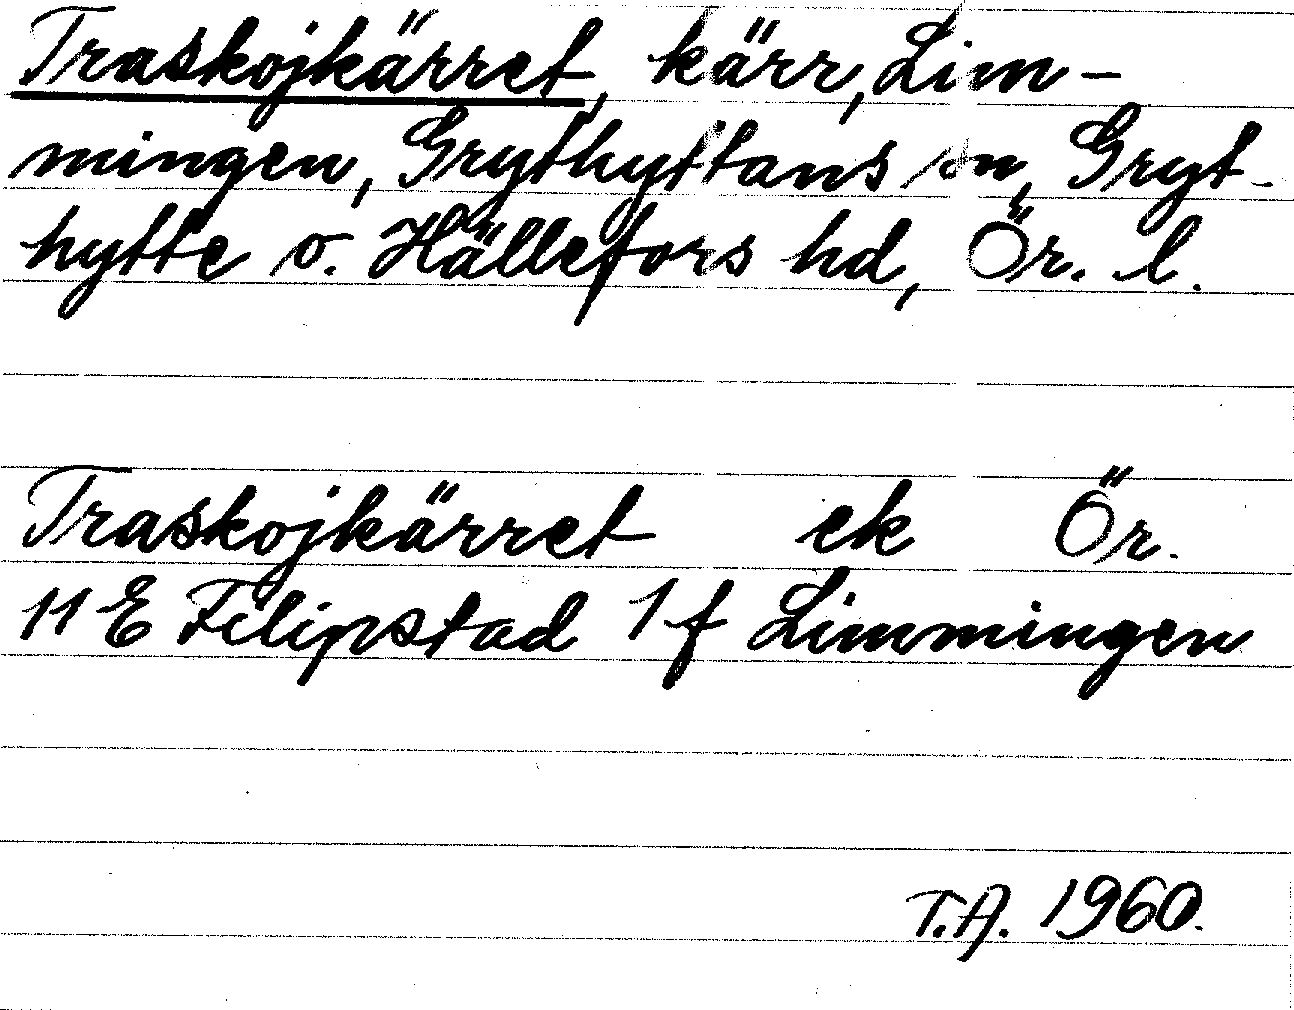 Traskojkärret, kärr, Lim-
mingen, Grythyttans sn, Gryt-
hytte o. Hällefors hd, Ör. l.
Traskojkärret ek Ör.
11 E Filipstad 1 f Limmingen
T.A. 1960.